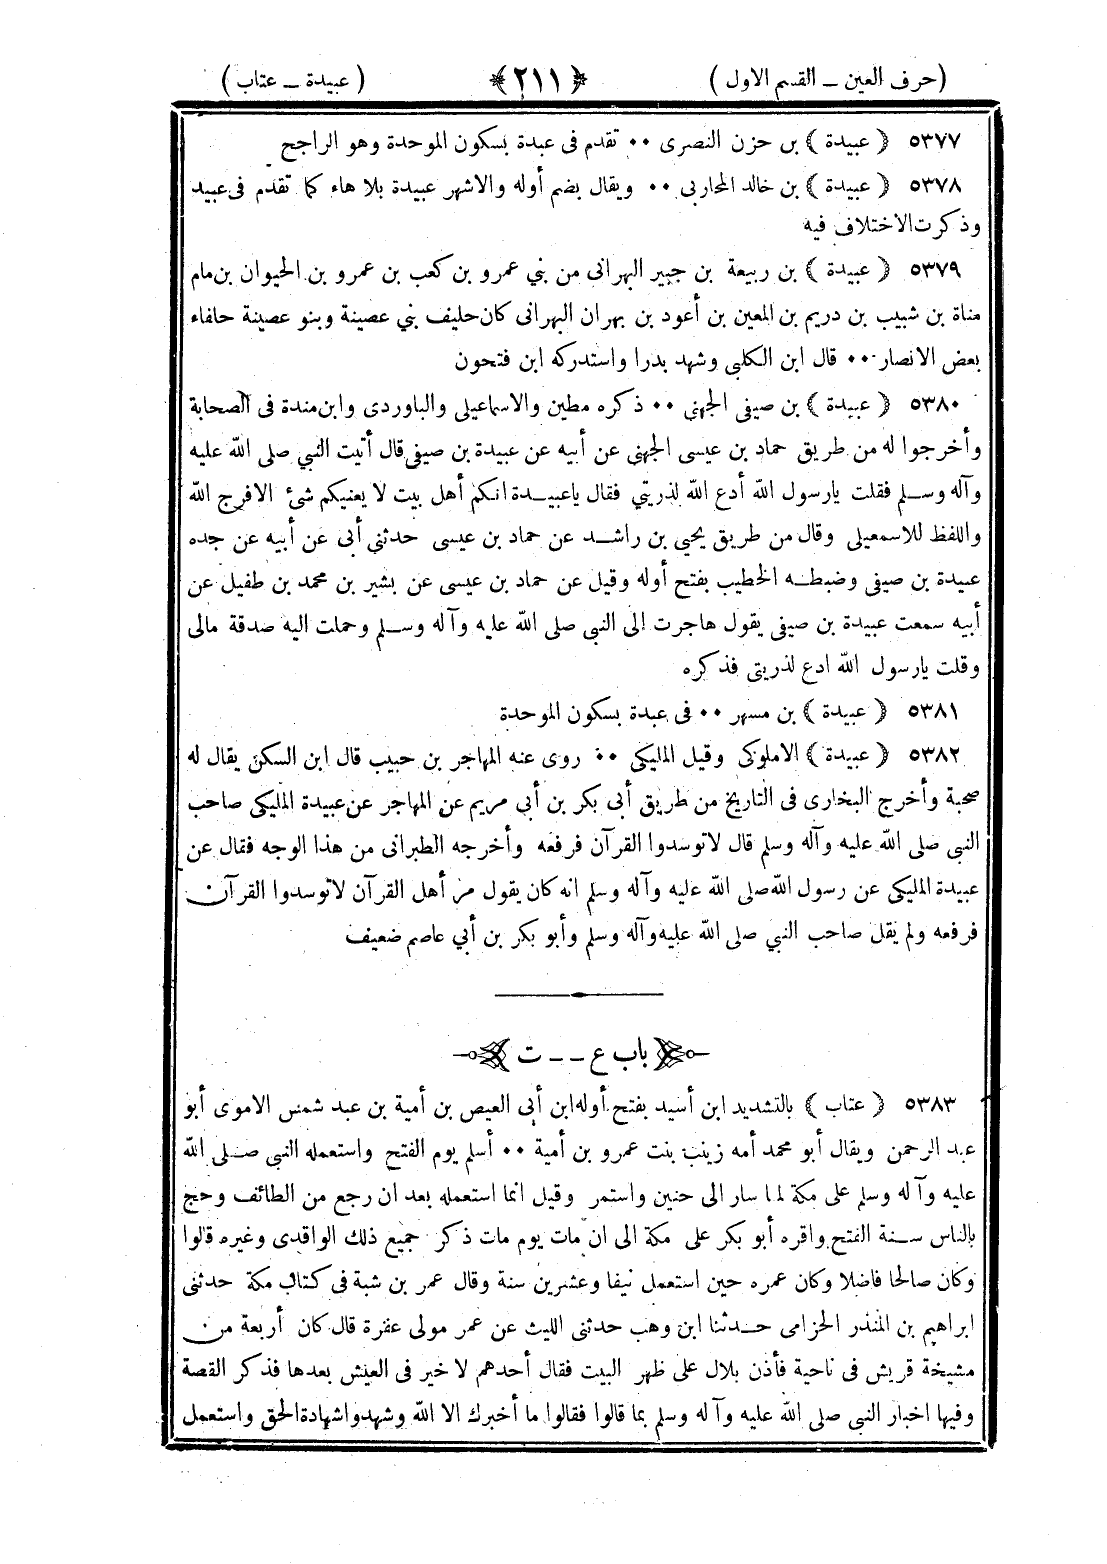 (حرف العين ــ القسم الاول) ﴿ ٢١١ ﴾ (عبيدة ــ عتاب)
٥٣٧٧ ﴿ عبيدة ﴾ بن حزن النصرى ٠٠ تقدم فى عبدة بسكون الموحدة وهو الراجح
٥٣٧٨ ﴿ عبيدة ﴾ بن خالد المحاربي ٠٠ ويقال بضم أوله والاشهر عبيدة بلا هاء كما تقدم فى عبيد
وذكرت الاختلاف فيه
٥٣٧٩ ﴿ عبيدة ﴾ بن ربيعة بن جبير البهرانى من بني عمرو بن كعب بن عمرو بن الحيوان بن مام
مناة بن شبيب بن دريم بن المعين بن أعود بن بهران البهرانى كان حليف بني عصينة وبنو عصينة حلفاء
بعض الانصار ٠٠ قال ابن الكلبي وشهد بدرا واستدركه ابن فتحون
٥٣٨٠ ﴿ عبيدة ﴾ بن صيفى الجهنى ٠٠ ذكره مطين والاسماعيلى والباوردى وابن مندة فى الصحابة
وأخرجوا له من طريق حماد بن عيسى الجهنى عن أبيه عن عبيدة بن صيفى قال أتيت النبي صلى الله عليه
وآله وسلم فقلت يارسول الله أدع الله لذريتي فقال ياعبيدة انكم أهل بيت لا يعنيكم شئ الافرج الله
واللفظ للاسمعيلى وقال من طريق يحيى بن راشد عن حماد بن عيسى حدثني أبى عن أبيه عن جده
عبيدة بن صيفى وضبطه الخطيب بفتح أوله وقيل عن حماد بن عيسى عن بشير بن محمد بن طفيل عن
أبيه سمعت عبيدة بن صيفى يقول هاجرت الى النبى صلى الله عليه وآله وسلم وحملت اليه صدقة مالى
وقلت يارسول الله ادع لذريتى فذكره
٥٣٨١ ﴿ عبيدة ﴾ بن مسهر ٠٠ فى عبدة بسكون الموحدة
٥٣٨٢ ﴿ عبيدة ﴾ الاملوكى وقيل المليكى ٠٠ روى عنه المهاجر بن حبيب قال ابن السكن يقال له
صحبة وأخرج البخارى فى التاريخ من طريق أبى بكر بن أبي مريم عن المهاجر عن عبيدة المليكى صاحب
النبى صلى الله عليه وآله وسلم قال لاتوسدوا القرآن فرفعه وأخرجه الطبرانى من هذا الوجه فقال عن
عبيدة المليكى عن رسول الله صلى الله عليه وآله وسلم انه كان يقول من أهل القرآن لاتوسدوا القرآن
فرفعه ولم يقل صاحب النبي صلى الله عليه وآله وسلم وأبو بكر بن أبي عاصم ضعيف
باب ع ــ ــ ت
٥٣٨٣ ﴿ عتاب ﴾ بالتشديد ابن أسيد بفتح أوله ابن أبى العيص بن أمية بن عبد شمس الاموى أبو
عبد الرحمن ويقال أبو محمد أمه زينب بنت عمرو بن أمية ٠٠ أسلم يوم الفتح واستعمله النبي صلى الله
عليه وآله وسلم على مكة لما سار الى حنين واستمر وقيل انما استعمله بعد ان رجع من الطائف وحج
بالناس سنة الفتح واقره أبو بكر على مكة الى ان مات يوم مات ذكر جميع ذلك الواقدى وغيره قالوا
وكان صالحا فاضلا وكان عمره حين استعمل نيفا وعشرين سنة وقال عمر بن شبة فى كتاب مكة حدثنى
ابراهيم بن المنذر الحزامى حدثنا ابن وهب حدثنى الليث عن عمر مولى عفرة قال كان أربعة من
مشيخة قريش فى ناحية فأذن بلال على ظهر البيت فقال أحدهم لا خير فى العيش بعدها فذكر القصة
وفيها اخبار النبى صلى الله عليه وآله وسلم بما قالوا فقالوا ما أخبرك الا الله وشهدوا شهادة الحق واستعمل